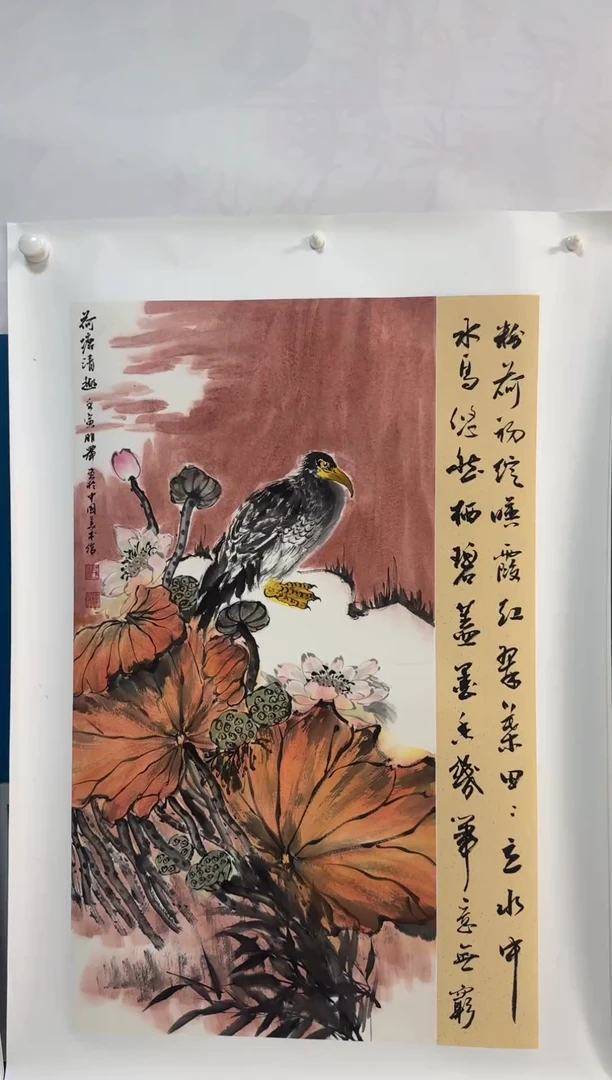 粉荷初绽映霞红翠叶田田立水中
水鸟悠然栖碧盖墨香几笔意无穷
荷塘清趣
壬寅明翠画于中国美术馆